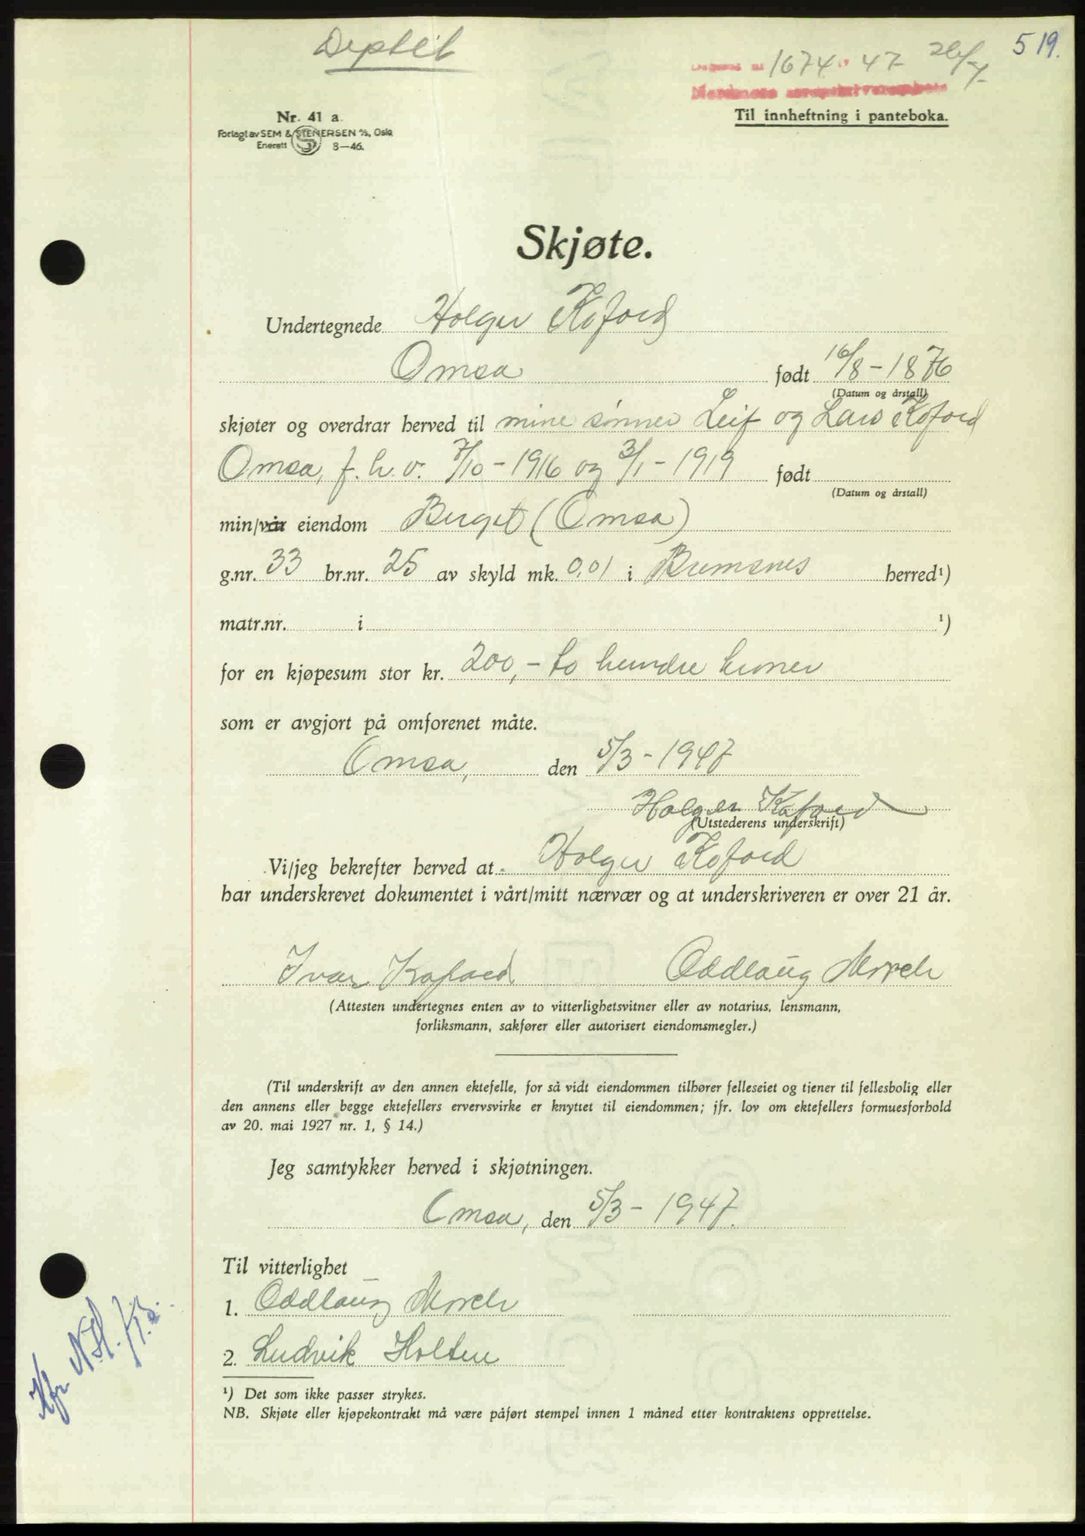 Dupblik
519.
1674 47 26/7
Nr. 41 a.
Forlagt av SEM & STENERSEN A/S, Oslo
Enerett 8—46.
Til innheftning i panteboka.
Skjøte.
Undertegnede Holger Kofoed
Omsa født 16/8-1876
(Datum og årstall)
skjøter og overdrar herved til mine sønner Leif og Lars Kofoed
Omsa, f. h. v. 7/10-1916 og 3/1-1919 født
(Datum og årstall)
min/vår eiendom Berget (Omsa)
g.nr. 33 br.nr. 25 av skyld mk. 0,01 i Bremsnes herred¹)
matr.nr. i ¹)
for en kjøpesum stor kr. 200,- to hundre kroner
som er avgjort på omforenet måte.
Omsa, den 5/3-1947
Holger Kofoed
(Utstederens underskrift)
Vi/jeg bekrefter herved at Holger Kofoed
har underskrevet dokumentet i vårt/mitt nærvær og at underskriveren er over 21 år.
Ivar Kofoed Oddlaug
(Attesten undertegnes enten av to vitterlighetsvitner eller av notarius, lensmann,
forliksmann, sakfører eller autorisert eiendomsmegler.)
(Til underskrift av den annen ektefelle, for så vidt eiendommen tilhører felleseiet og tjener til fellesbolig eller
den annens eller begge ektefellers ervervsvirke er knyttet til eiendommen; jfr. lov om ektefellers formuesforhold
av 20. mai 1927 nr. 1, § 14.)
Jeg samtykker herved i skjøtningen.
Omsa, den 5/3-1947.
Til vitterlighet
1. Oddlaug
2. Ludvik Holten
¹) Det som ikke passer strykes.
NB. Skjøte eller kjøpekontrakt må være påført stempel innen 1 måned etter kontraktens opprettelse.